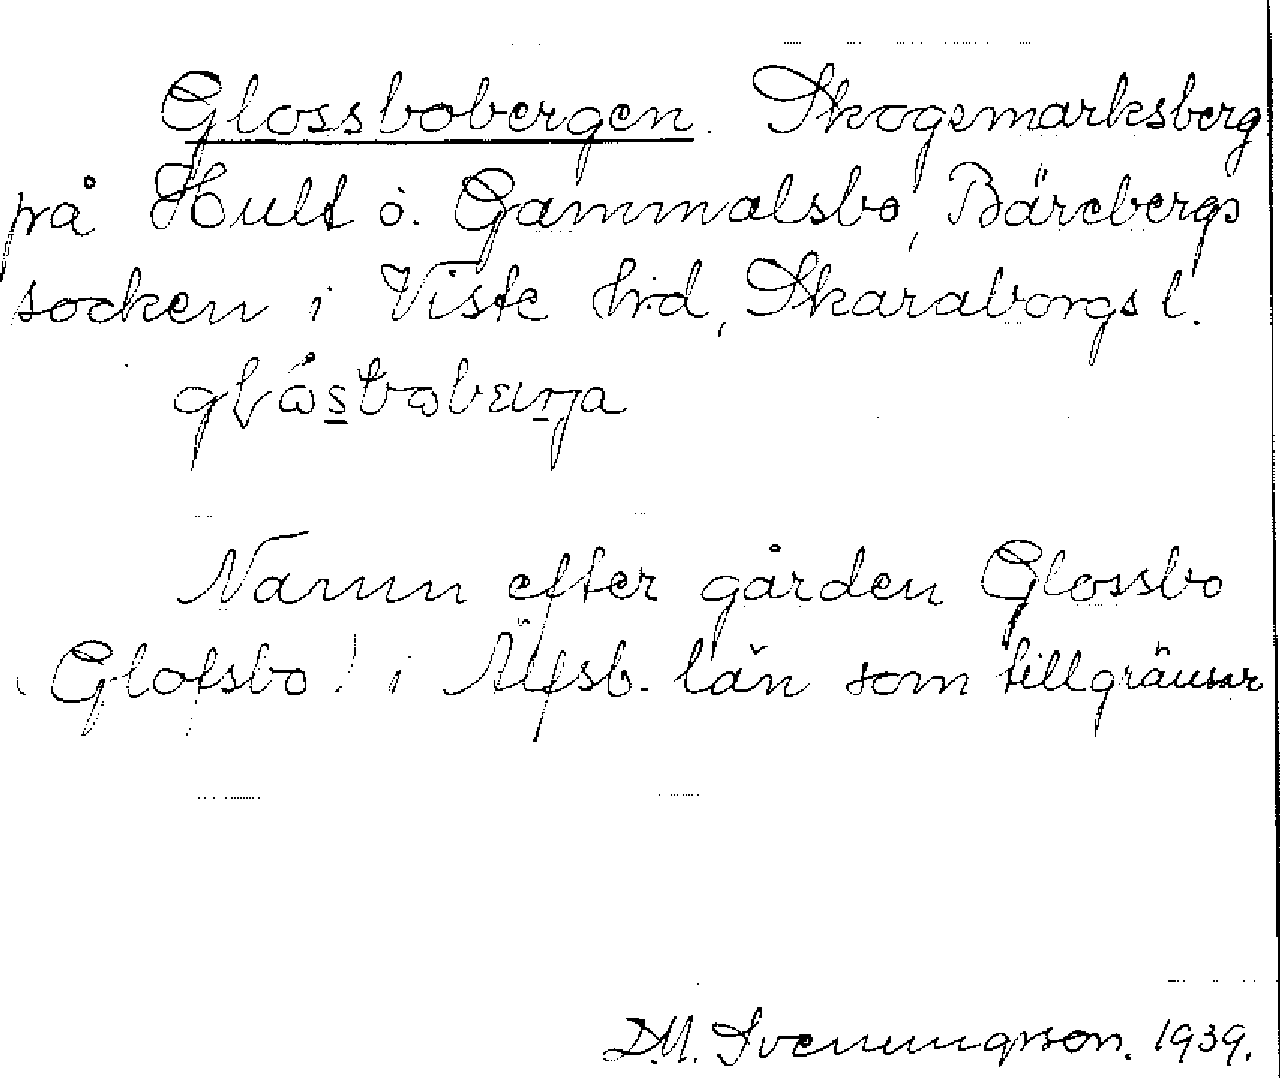 Glossbobergen. Skogsmarksberg
på Hult o. Gammalsbo, Bärebergs
socken i Viste hrd, Skaraborgs l.
Namn efter gården Glossbo
(Glotsbo! i Älfsb. län som tillgränsar
D.M. Svenungsson. 1939.